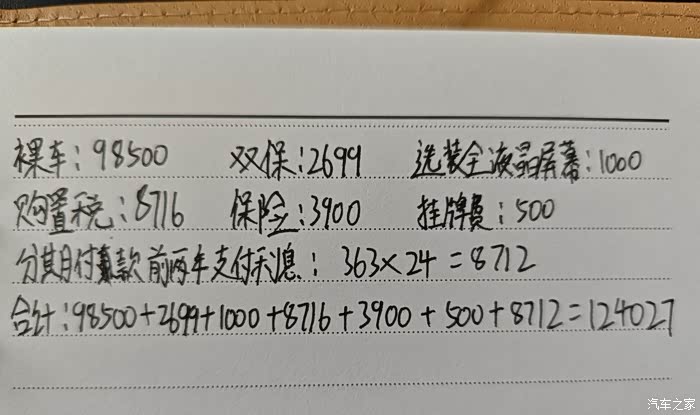 裸车：98500 双保：2699 选装全液晶屏幕：1000
购置税：8716 保险：3900 挂牌费：500
分期付款前两年支付利息：363×24=8712
合计：98500+2699+1000+8716+3900+500+8712=124027
汽车之家